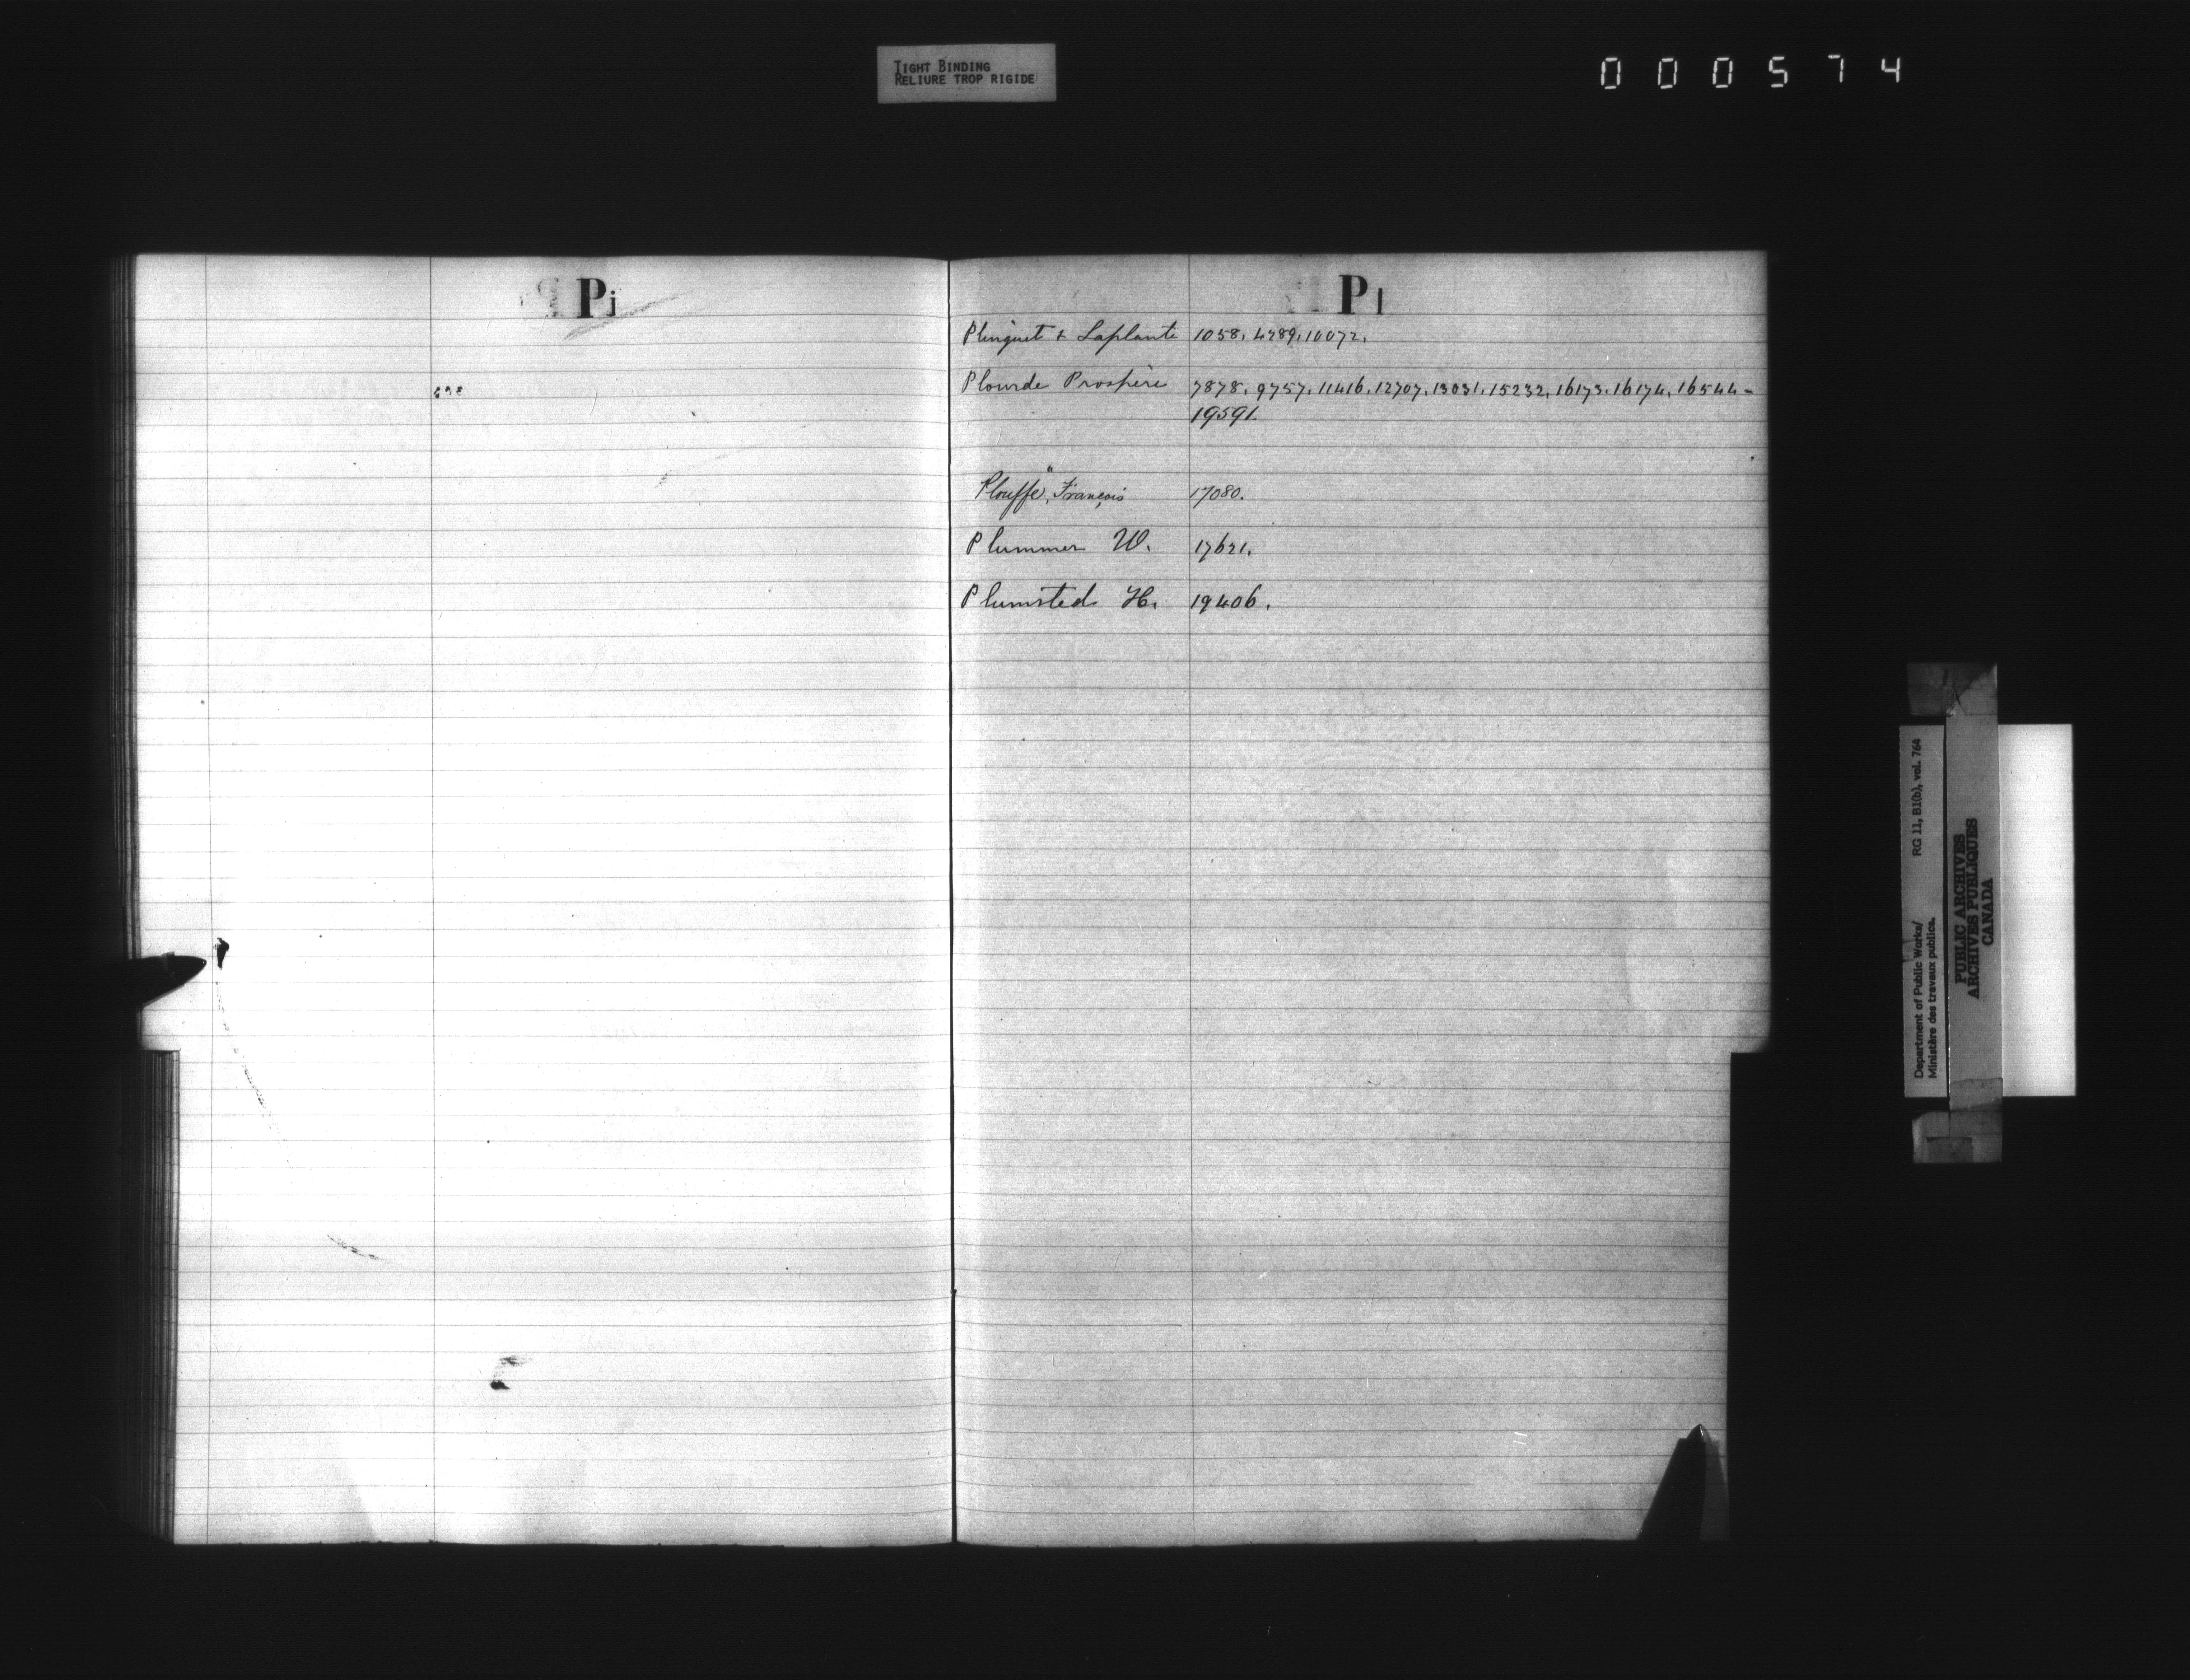 TIGHT BINDING
RELIURE TROP RIGIDE
000574
Pi
Pl
Plinguet & Laplante 1058. 4289. 10072.
Plourde Prospère 7878. 9757. 11416. 12707. 13031. 15232. 16173. 16174. 16544-
19591.
"
Plouffe, François 17080.
Plummer W. 17621.
Plumsted H. 19406.
Department of Public Works/ RG 11, B1(b), vol. 764
Ministère des travaux publics.
PUBLIC ARCHIVES
ARCHIVES PUBLIQUES
CANADA